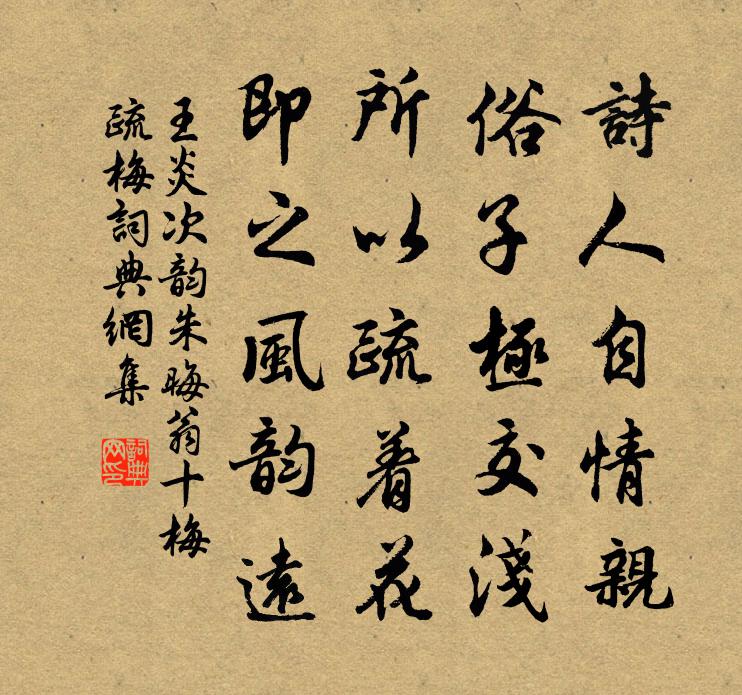 詩人自情親
俗子極交淺
所以疏着花
即之風韵遠
王炎次韵朱晦翁十梅
疏梅詞典網集
詞典網印